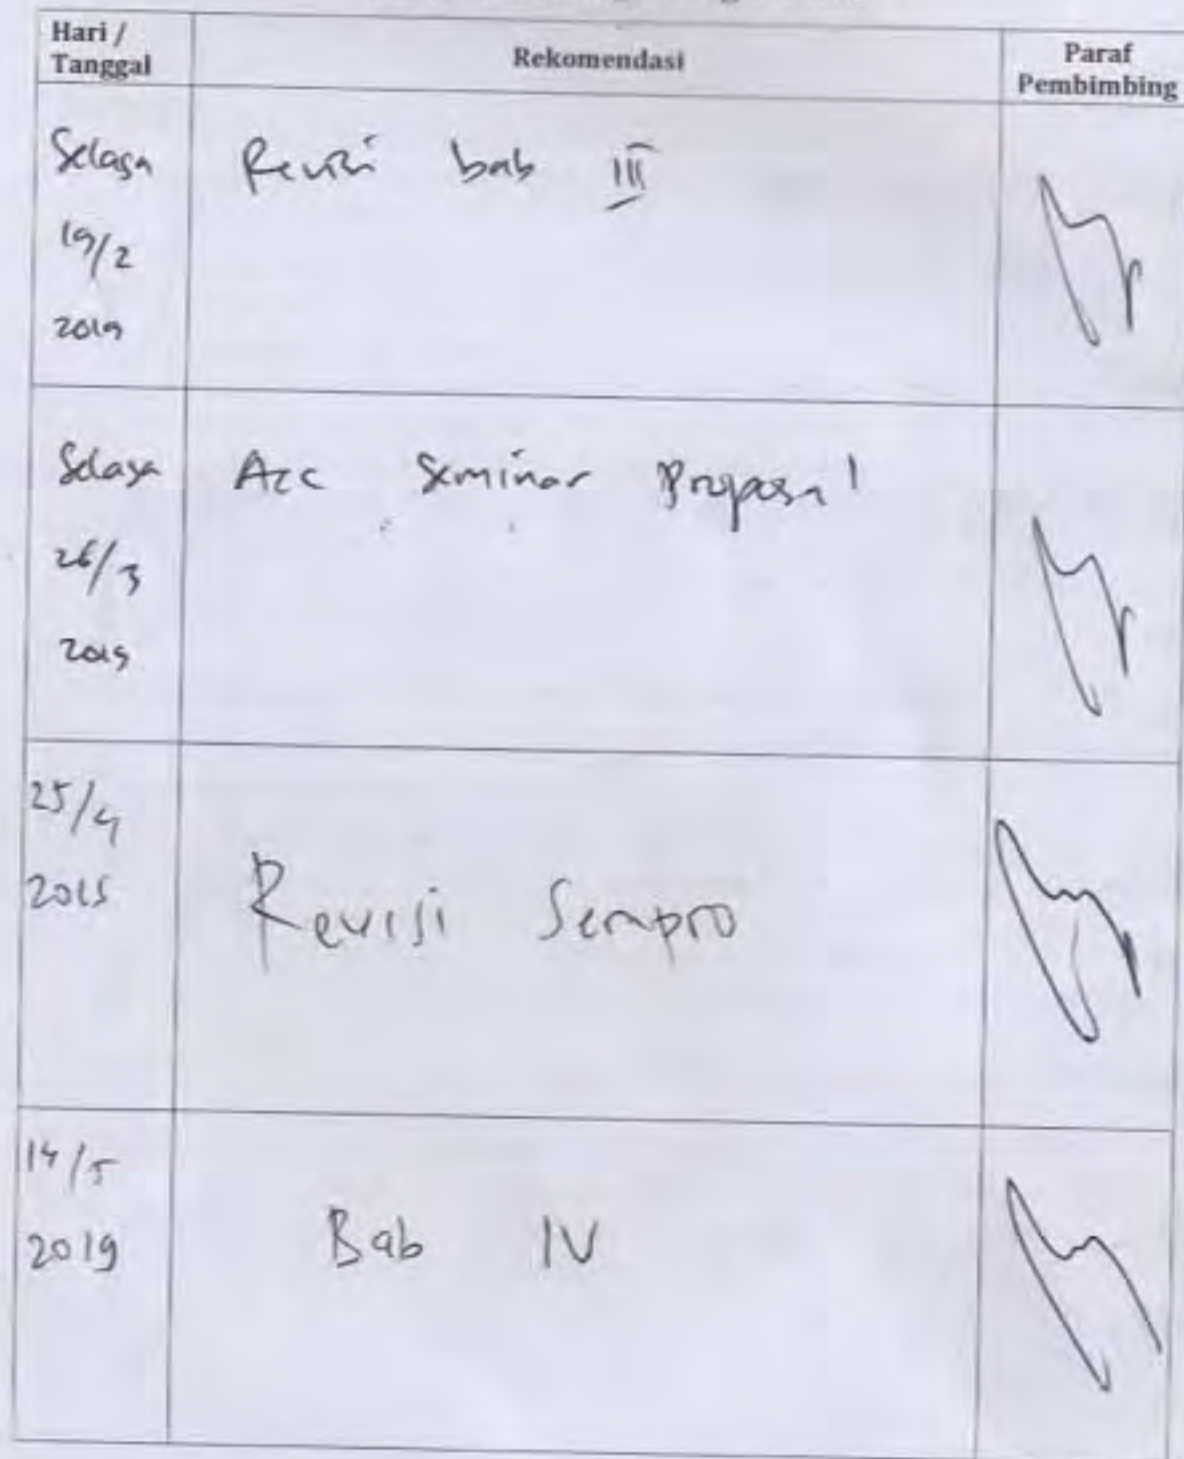 Hari / Tanggal
Rekomendasi
Paraf Pembimbing
Selasa
19/2
2019
Revisi bab III
Selasa
26/3
2019
Acc Seminar Proposal
25/4
2019
Revisi Sempro
14/5
2019
Bab IV